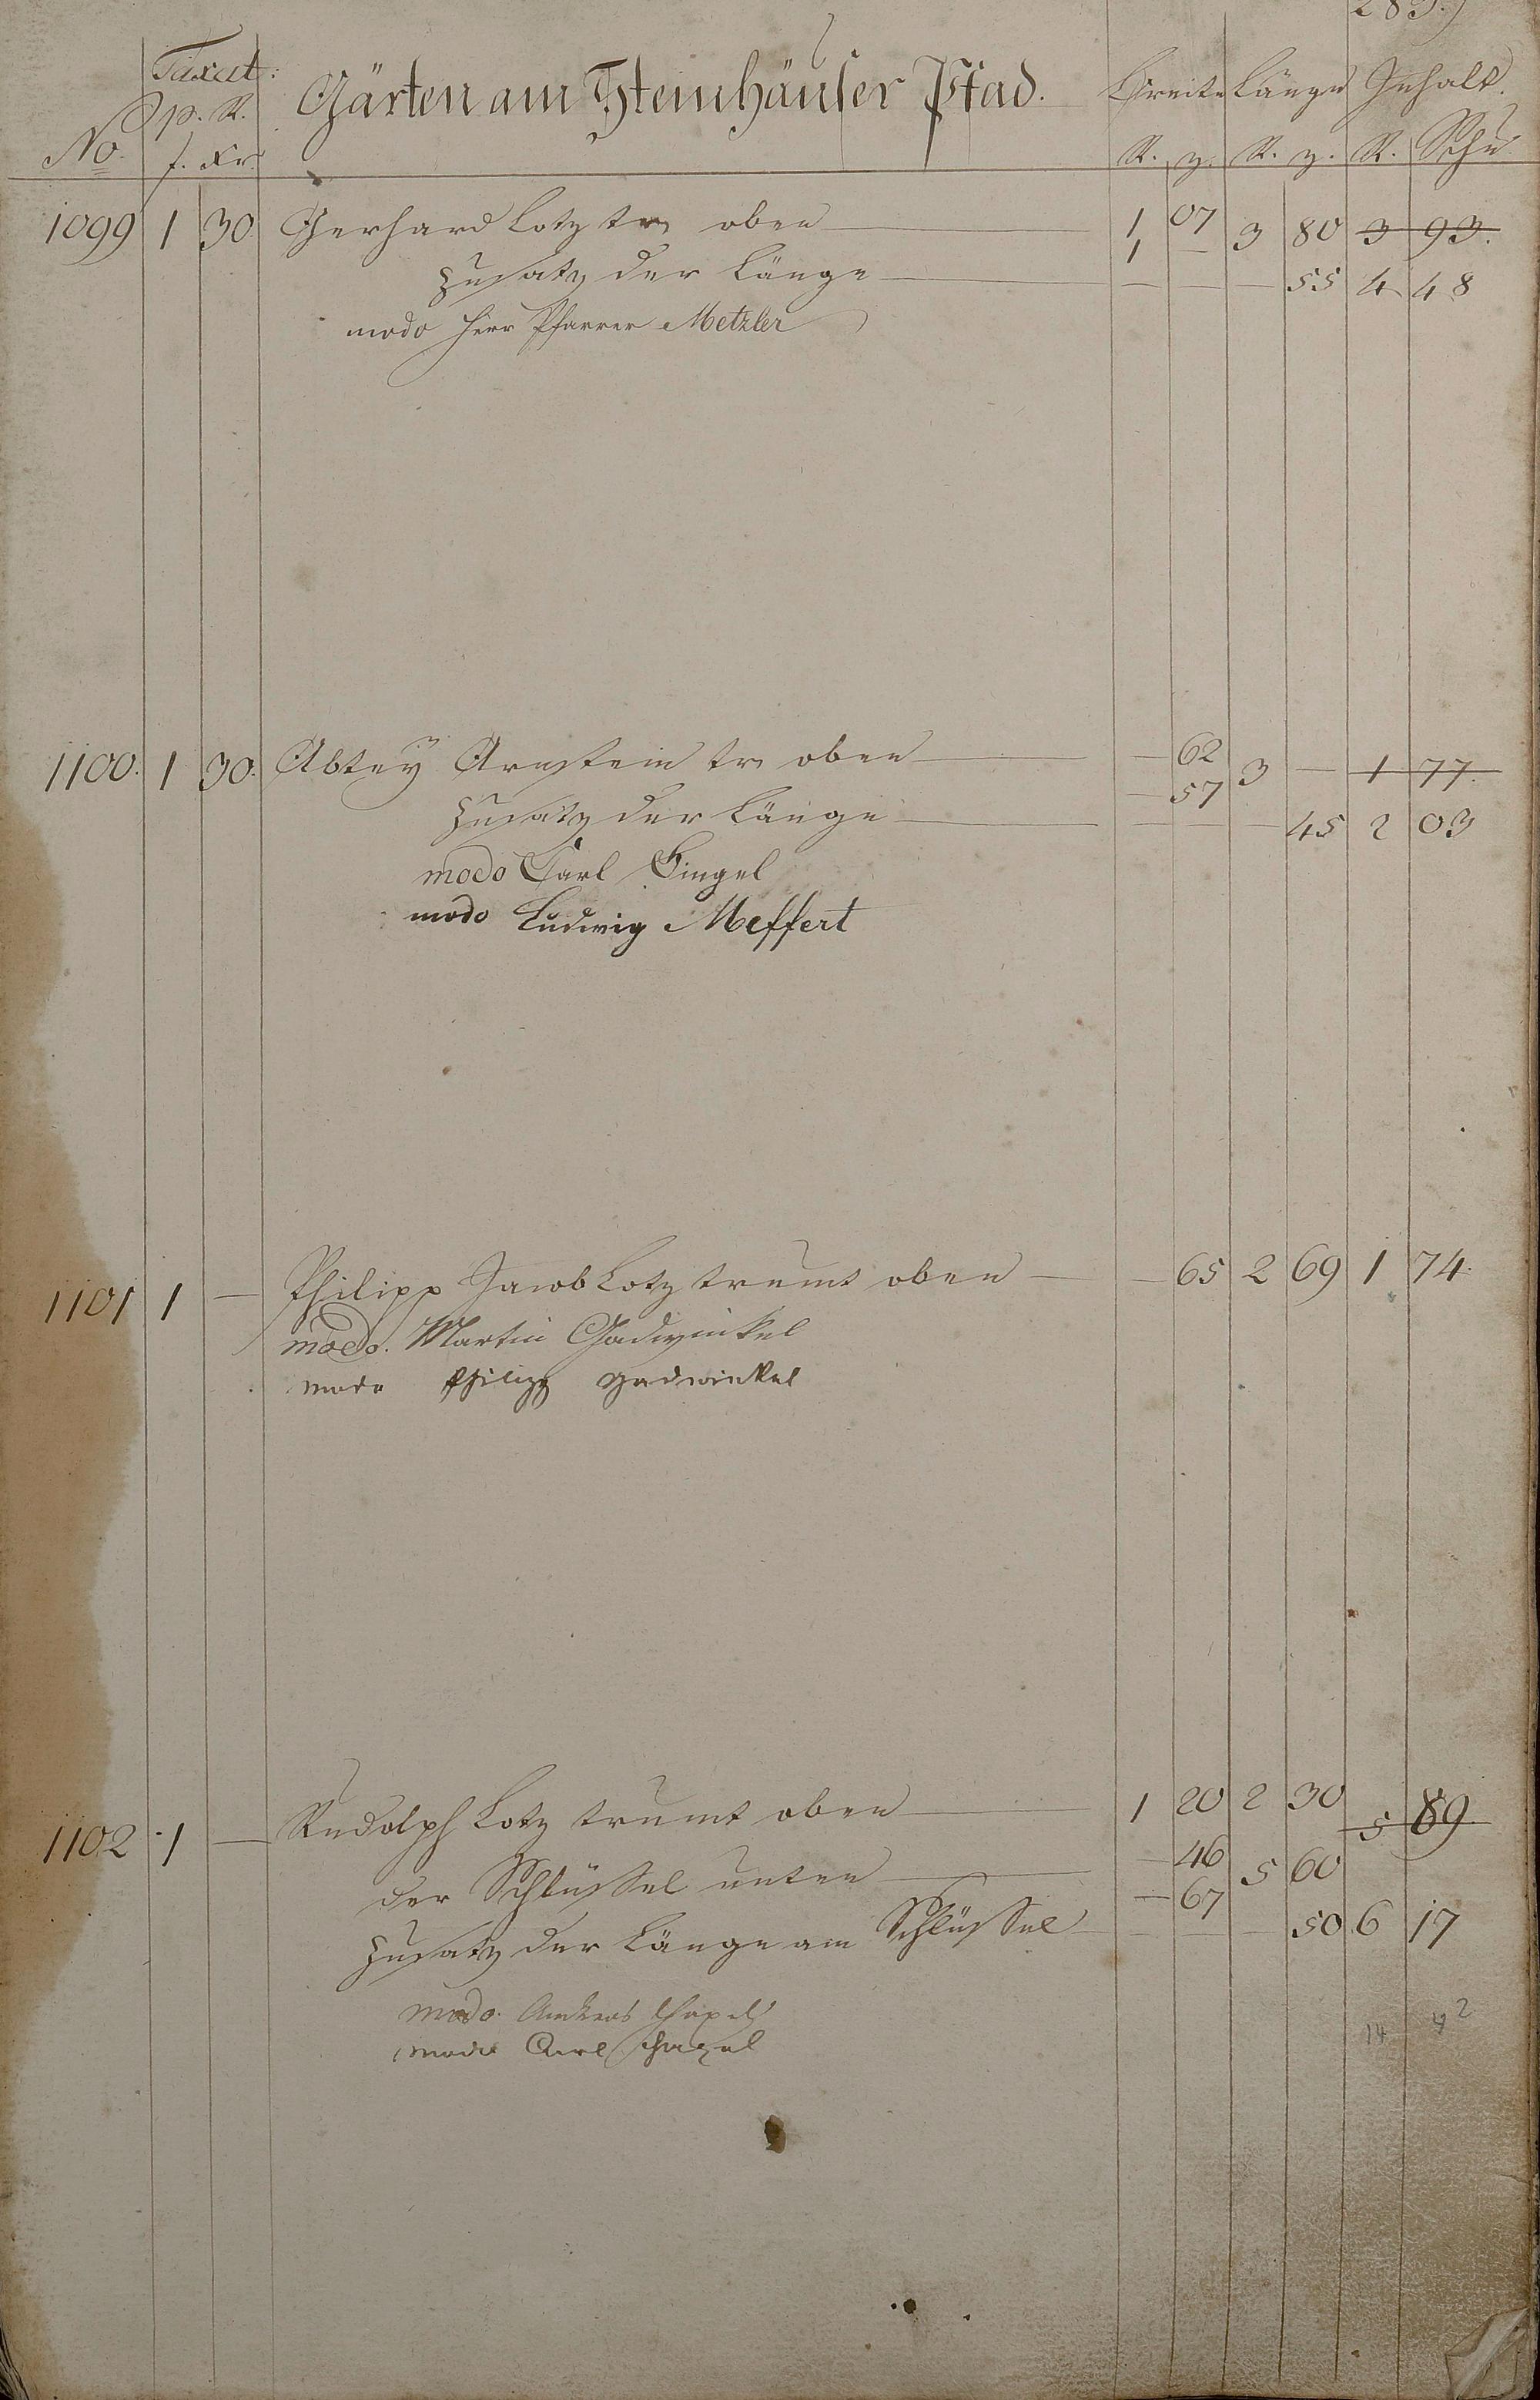 283.)
Taxat: Gärten am Steinhäuser Pfad. Breite Länge Inhalt.
No. p. R. f. Xr. R. z. R. z. R. Schu
1099 1 30. Gerhard Lotz tr oben — 1 07 3 80 3 93.
1 —
Zusatz der Länge — — — — 55 4 48
modo Herr Pfarrer Metzler
1100. 1 30. Abtey Arnstein tr oben — — 62 3 — 1 77.
— 57
Zusatz der Länge — — — 45 2 03
modo Carl Singel
modo Ludwig Meffert
1101 1 — Philipp Jacob Lotz trumt oben — — 65 2 69 1 74.
modo. Martin Gadwinkel
modo Philipp Gadwinkel
1102 1 — Rudolph Lotz trumt oben — 1 20 2 30 5 89.
der Schlüssel unten — — 46 5 60
— 67
Zusatz der Länge am Schlüssel — — — 50 6 17
modo. Andreas
modo Carl
14 42